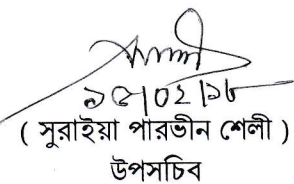 ১৫|০২|১৮
( সুরাইয়া পারভীন শেলী )
উপসচিব